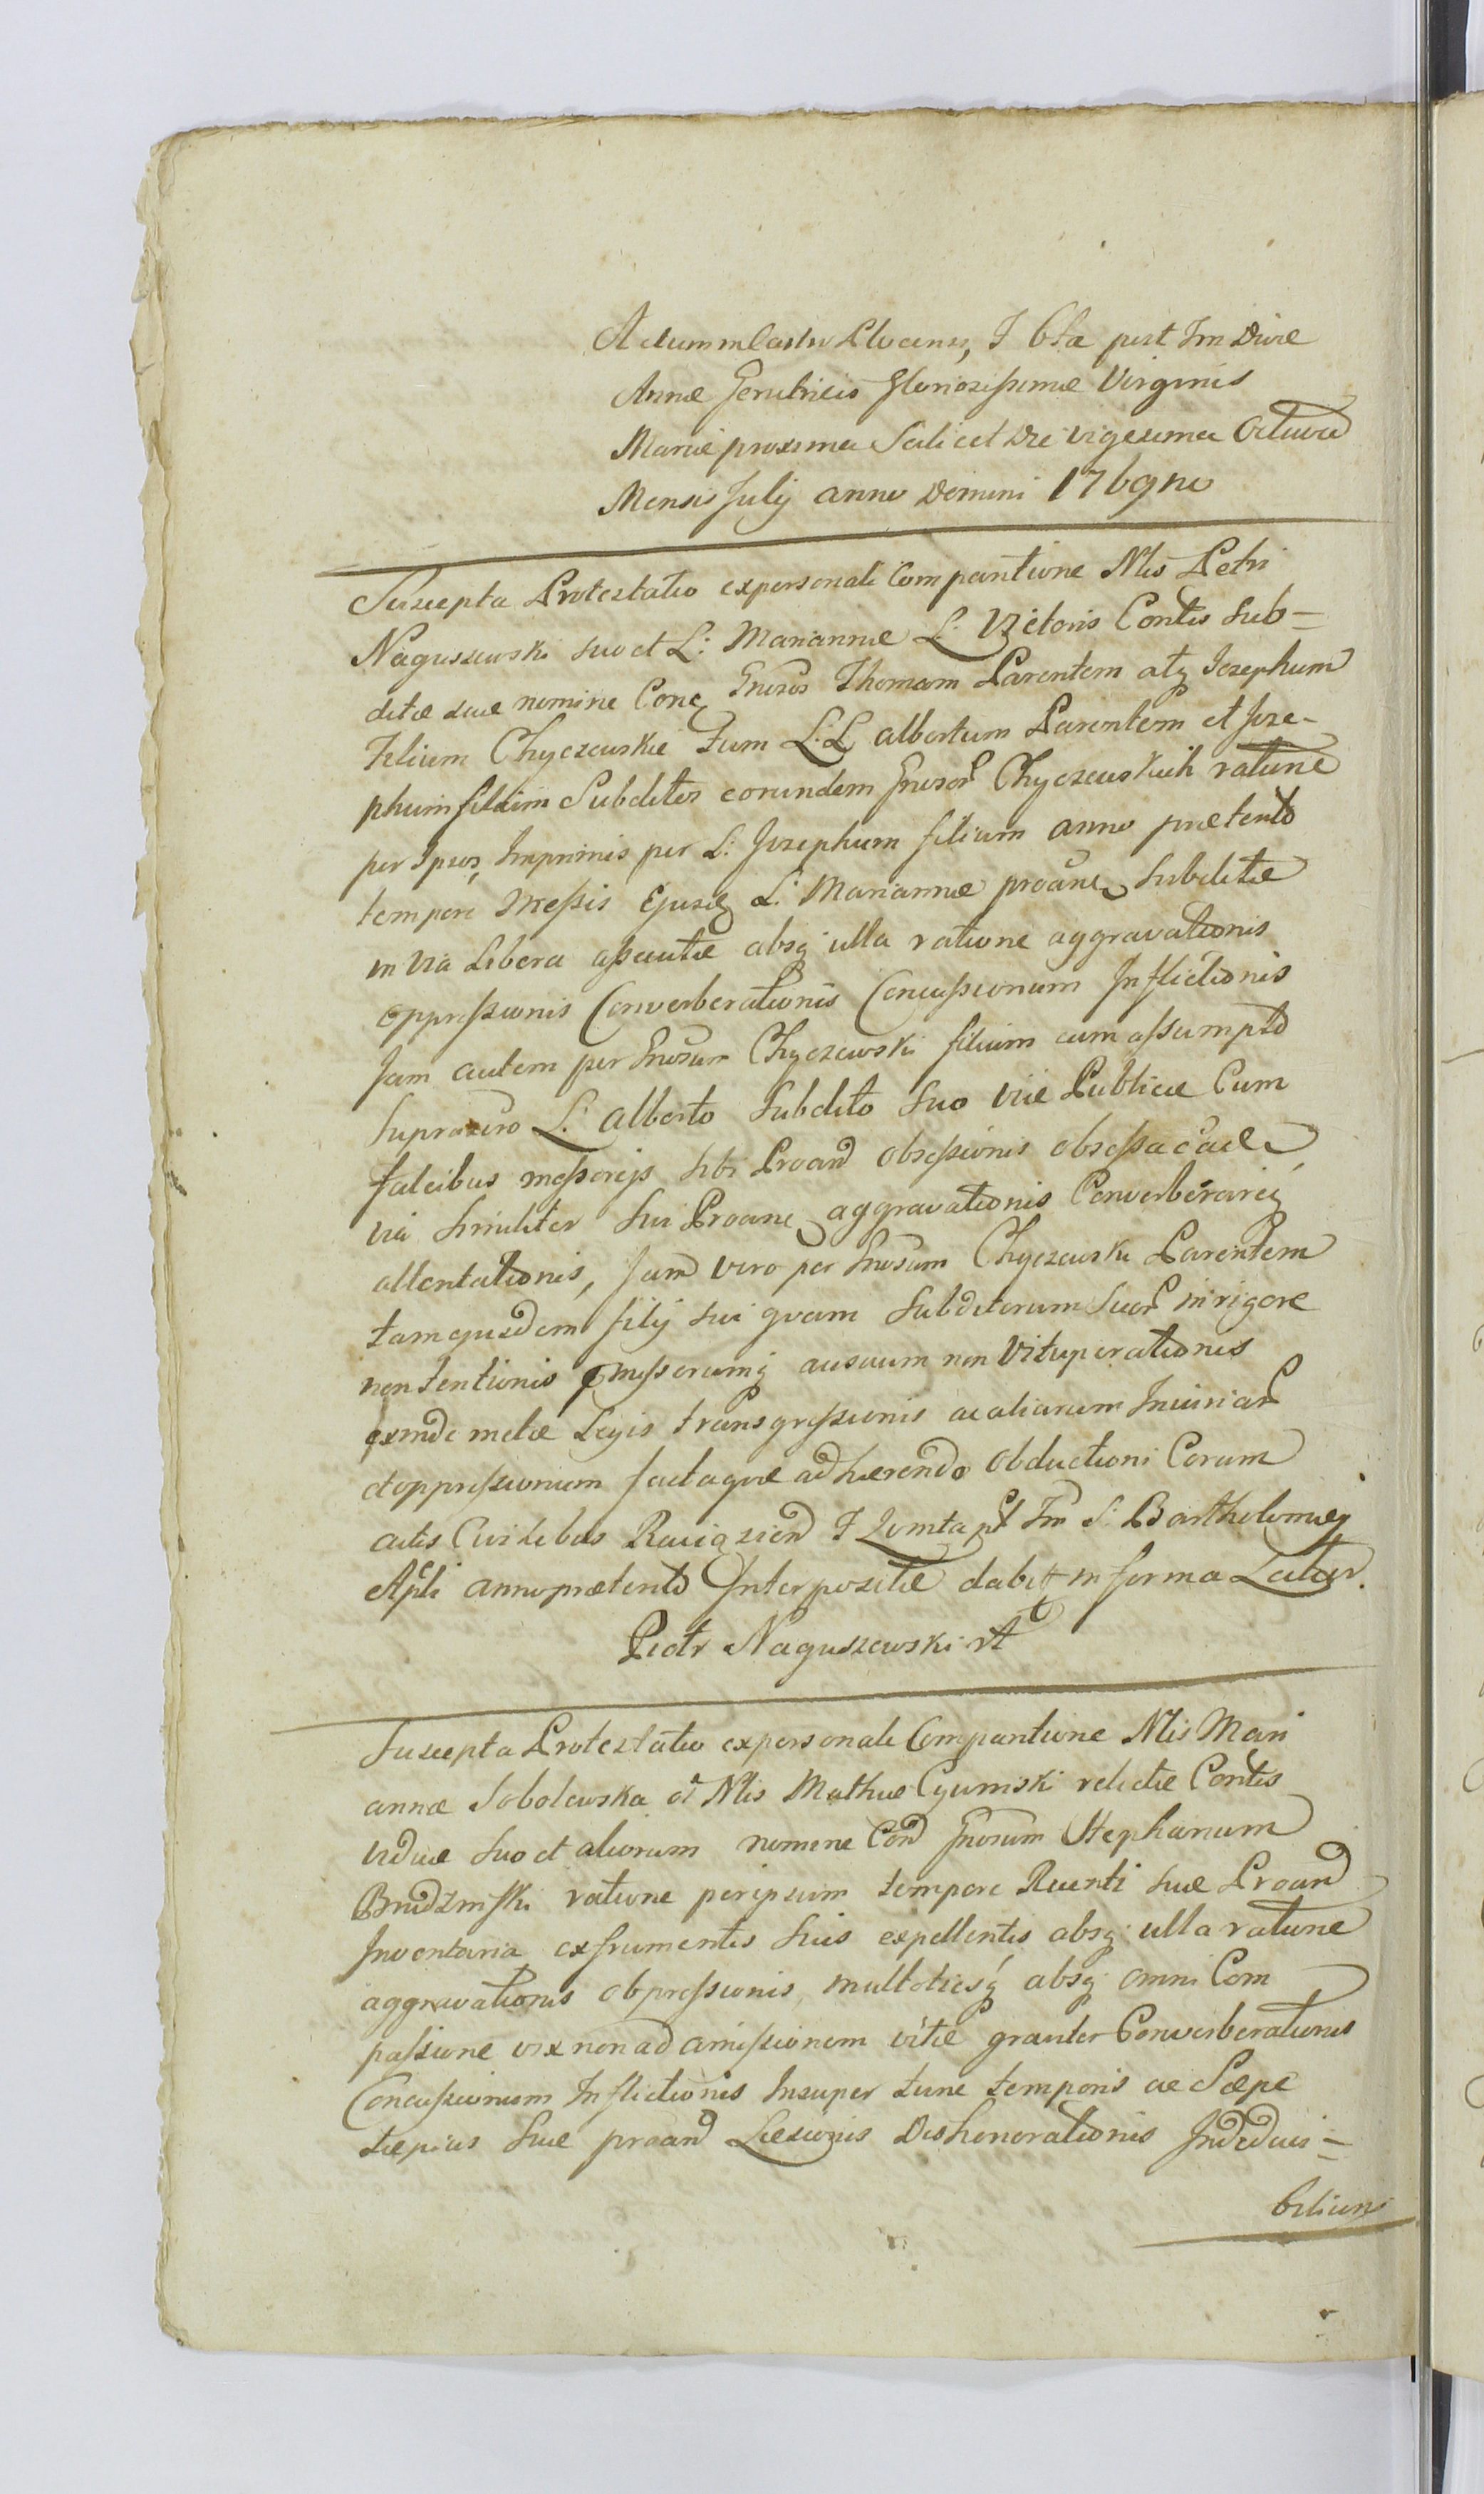 Actum in Castro Plocensi, F 6ta post Fm Divæ
Annæ Genitricis Gloriosissimæ Virginis
Mariæ proxima Scilicet Die vigesima Octava
Mensis Julij anno Domini 1769no
Suscepta Protestatio ex personali Comparitione Nlis Petri
Naguszewski suo et L: Mariannæ L: Victoris Contis Sub=
ditæ suæ nomine Conq Gnrsos Thomam Parentem atq Josephum
Filium Chyczewskie tum L:L albertum Parentem et Jose-
phum filium Subditos eorundem Gnrsor Chyczewskich ratione
per Ipsos, Imprimis per L: Josephum filium anno prætento
tempore Messis Ejusdq L: Mariannæ proane Subditæ
in Via Libera assecutæ absq ulla ratione aggravationis
oppressionis Converberationis Concussionum Inflictionis
Jam autem per Gnrsum Chyczewski filium cum assumpto
L: Alberto Subdito Suo viæ Publicæ Cum
falcibus messorijs sibi Proand obsessionis obsessa
via Similiter Sui Proane aggravationis Converberariq
attentationis, Jam vero per Gnrsum Chyczewski Parentem
tam ejusdem filij sui qvam Subditorum Suor in rigore
non tentionis ausuum non Vituperationis
exinde metæ Legis transgressionis ac aliarum Iniuriar
et oppressionum factaqve adhærendo Obductioni Coram
actis Civilibus Raciązien F Qvinta pst Fm S: Bartholomæj
Apli anno prætento Interpositæ dabitt in forma Latiter.
Piotr Naguszewski
Suscepta Protestatio ex personali Comparitione Nlis Mari
annæ Sobolewska ol Nlis Mathiæ Cyumski relictæ Contis
Viduæ Suo et aliorum nomine Con Gnrsum Stephanum
Brudzinski ratione per ipsum tempore Recenti suæ Proand
Inventaria ex frumentis Suis expellentis absq ulla ratione
aggravationis obpressionis, multotiesq absq omni Com
passione vix non ad amissionem vitæ graviter Converberationis
Concussionum Inflictionis Insuper tunc temporis ac Sæpe
sæpius Suæ proand Læsionis Dishonorationis Indedeci=
bilium